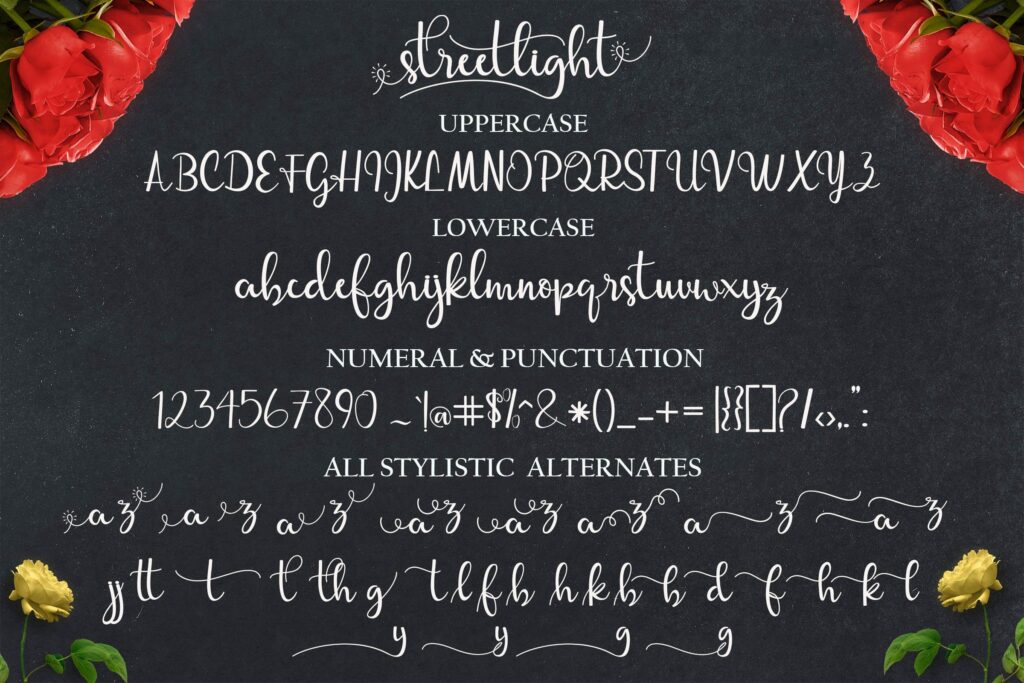 streetlight
UPPERCASE
ABCDEFGHIJKLMNOPQRSTUVWXYZ
LOWERCASE
abcdefghijklmnopqrstuvwxyz
NUMERAL & PUNCTUATION
1234567890 ~`!@#$%^&*()_-+=|{}[]?/<>,.":
ALL STYLISTIC ALTERNATES
a z a z a z a z a z a z a z a z
jj tt t t th g t l f b h k b b d f h k l
y y g g